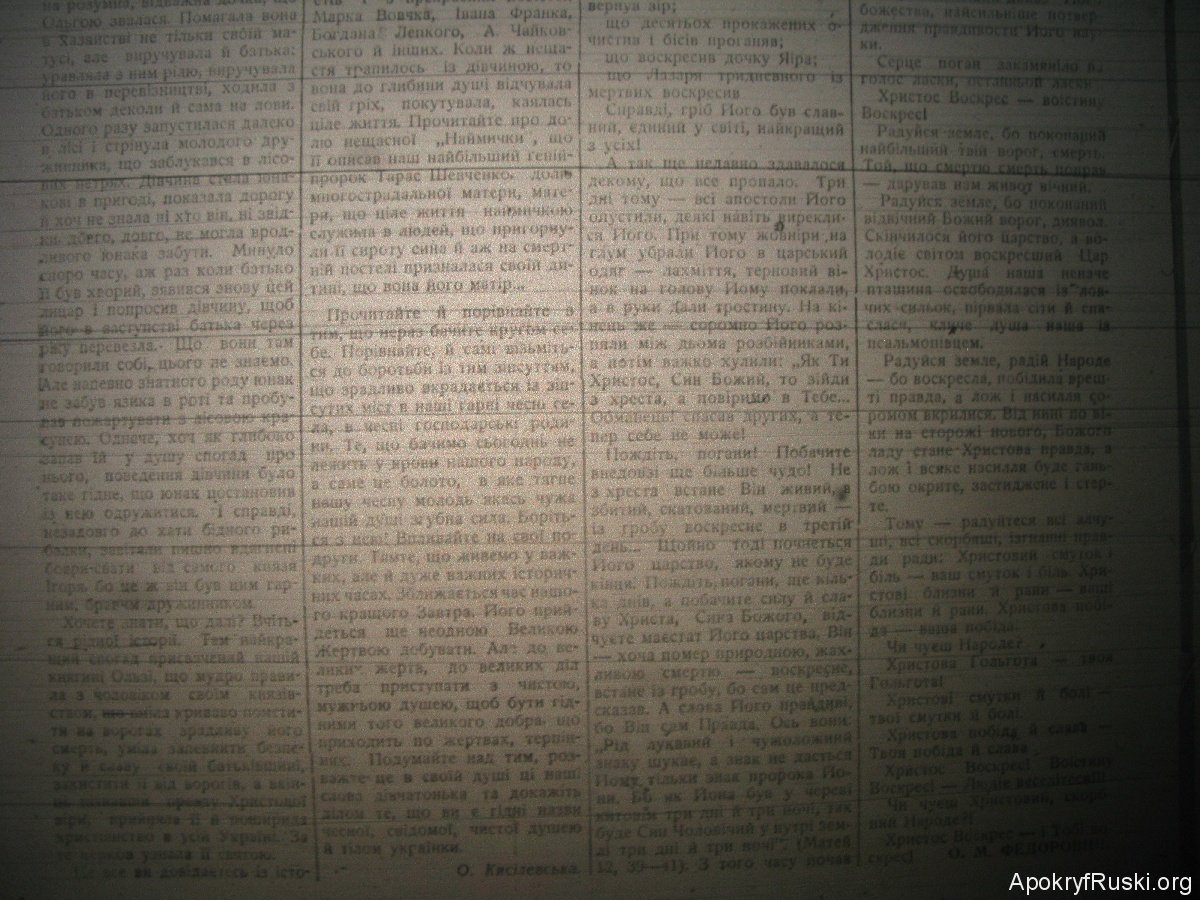 на розумна, відважна дочка, що
Ольгою звалася. Помагала вона
в Хазяйстві не тільки своїй ма-
тусі, але виручувала й батька:
управляла з ним рілю, виручувала
його в перевізництві, ходила з
батьком деколи й сама на лови.
Одного разу запустилася далеко
в лісі і стрінула молодого дру-
жинника, що заблукався в лісо-
вих нетрях. Дівчина стала юна-
кові в пригоді, показала дорогу
й хоч не знала ні хто він, ні звід-
ки довго, довго, не могла врод-
ливого юнака забути. Минуло
скоро часу, аж раз коли батько
її був хворий, зявився знову цей
лицар і попросив дівчину, щоб
його в заступстві батька через
ріку перевезла. Що вони там
говорили собі, цього не знаємо.
Але напевно знатного роду юнак
не забув язика в роті та пробу-
вав пожартувати з лісовою кра-
сунею. Одначе, хоч як глибоко
запав їй у душу спогад про
нього, поведення дівчини було
таке гідне, що юнак постановив
із нею одружитися. І справді,
незадовго до хати бідного ри-
балки, завітали пишно вдягнені
бояри-свати від самого князя
Ігоря, бо це ж він був цим гар-
ним, бравим дружинником.
Хочете знати, що далі? Вчіть-
ся рідної історії. Там найкра-
щий спогад присвячений нашій
княгині Ользі, що мудро прави-
ла з чоловіком своїм князів-
ством, що вміла криваво помсти-
ти на ворогах зрадливу його
смерть, уміла запевнити безпе-
ку й славу своїй батьківщині,
захистити її від ворогів, а вкін-
ці пізнавши правду Христової
віри, прийняла її й поширила
християнство в усій Україні. За
те церков узнала й святою.
Це все ви довідаєтесь із істо-
Марка Вовчка, Івана Франка,
Богдана Лепкого, А. Чайков-
ського й інших. Коли ж неща-
стя трапилось із дівчиною, то
вона до глибини душі відчувала
свій гріх, покутувала, каялась
ціле життя. Прочитайте про до-
лю нещасної „Наймички", що
її описав наш найбільший геній-
пророк Тарас Шевченко: долю
многострадальної матери, мате-
ри, що ціле життя наймичкою
служила в людей, що пригорну-
ли її сироту сина й аж на смерт-
ній постелі призналася своїй ди-
тині, що вона його матір...
Прочитайте й порівнайте з
тим, що нераз бачите кругом се-
бе. Порівнайте, й самі візьміть-
ся до боротьби із тим зіпсуттям,
що зрадливо вкрадається із зіп-
сутих міст в наші гарні чесні се-
ла, в чесні господарські роди-
ни. Те, що бачимо сьогодні не
лежить у крови нашого народу,
а саме це болото, в яке тягне
нашу чесну молодь якась чужа
нашій душі згубна сила. Боріть-
ся з нею! Впливайте на свої по-
други. Тямте, що живемо у важ-
ких, але й дуже важних історич-
них часах. Зближається час нашо-
го кращого Завтра. Його прий-
деться ще неодною Великою
Жертвою добувати. Але до ве-
ликих жертв, до великих діл
треба приступати з чистою,
мужньою душею, щоб бути гід-
ними того великого добра, що
приходить по жертвах, терпін-
нях. Подумайте над тим, роз-
важте це в своїй душі ці наші
слова дівчатонька та докажіть
ділом те, що ви є гідні назви
чесної, свідомої, чистої душею
й тілом українки.
О. Кисілевська.
вернув зір;
що десятьох прокажених о-
чистив і бісів проганяв;
що воскресив дочку Яіра;
що Лазаря тридневного із
мертвих воскресив
Справді, гріб Його був слав-
ний, єдиний у світі, найкращий
з усіх!
А так ще недавно здавалося
декому, що все пропало. Три
дні тому — всі апостоли Його
опустили, деякі навіть вирекли-
ся Його. При тому жовніри на
глум убрали Його в царський
одяг — лахміття, терновий ві-
нок на голову Йому поклали,
а в руки дали тростину. На кі-
нець же — соромно Його роз-
пяли між двома розбійниками,
а потім важко хулили: „Як Ти
Христос, Син Божий, то зійди
з хреста, а повіримо в Тебе...
Обманець! спасав других, а те-
пер себе не може!
Пождіть, погани! Побачите
внедовзі ще більше чудо! Не
з хреста встане Він живий, а
збитий, скатований, мертвий —
із гробу воскресне в третій
день... Щойно тоді почнеться
Його царство, якому не буде
кінця. Пождіть, погани, ще кіль-
ка днів, а побачите силу й сла-
ву Христа, Сина Божого, від-
чуєте маєстат Його царства. Він
— хоча помер природною, жах-
ливою смертю — воскресне,
встане із гробу, бо сам це пред-
сказав. А слова Його правдиві,
бо Він сам Правда. Ось вони:
„Рід лукавий і чужоложний
знаку шукає, а знак не дасться
Йому, тільки знак пророка Йо-
ни. Бо як Йона був у череві
китовім три дні й три ночі, так
буде Син Чоловічий у нутрі зем-
лі три дні й три ночі" (Матей
12, 39—41). З того часу почав
божества, найсильніше потвер-
дження правдивости Його нау-
ки.
Серце поган закамяніло на
голос ласки, останньої ласки.
Христос Воскрес — воістину
Воскрес!
Радуйся земле, бо поконаний
найбільший твій ворог, смерть.
Той, що смертю смерть поправ
— дарував нам живот вічний.
Радуйся земле, бо поконаний
відвічний Божий ворог, диявол.
Скінчилося його царство, а во-
лодіє світом воскресший Цар
Христос. Душа наша неначе
пташина освободилася із лов-
чих сильок, пірвала сіти й спа-
слася, кличе душа наша із
псальмопівцем.
Радуйся земле, радій Народе
— бо воскресла, побідила вреш-
ті правда, а лож і насилля со-
ромом вкрилися. Від нині по ві-
ки на сторожі нового, Божого
ладу стане Христова правда, а
лож і всяке насилля буде гань-
бою окрите, застиджене і стер-
те.
Тому — радуйтеся всі алчу-
щі, всі скорбящі, ізгнані прав-
ди ради: Христовий смуток і
біль — ваш смуток і біль. Хри-
стові близни й рани — ваші
близни й рани. Христова побі-
да — ваша побіда.
Чи чуєш Народе?
Христова Гольгота — твоя
Гольгота!
Христові смутки й болі —
твої смутки й болі.
Христова побіда й слава —
Твоя побіда й слава
Христос Воскрес! Воістину
Воскрес! — Людіє веселітеся!!!
Чи чуєш Христовий, скорб-
ний Народе?!
Христос Воскрес — і Тобі
скрес!
О. М. ФЕДОРОВИЧ.
ApokryfRuski.org